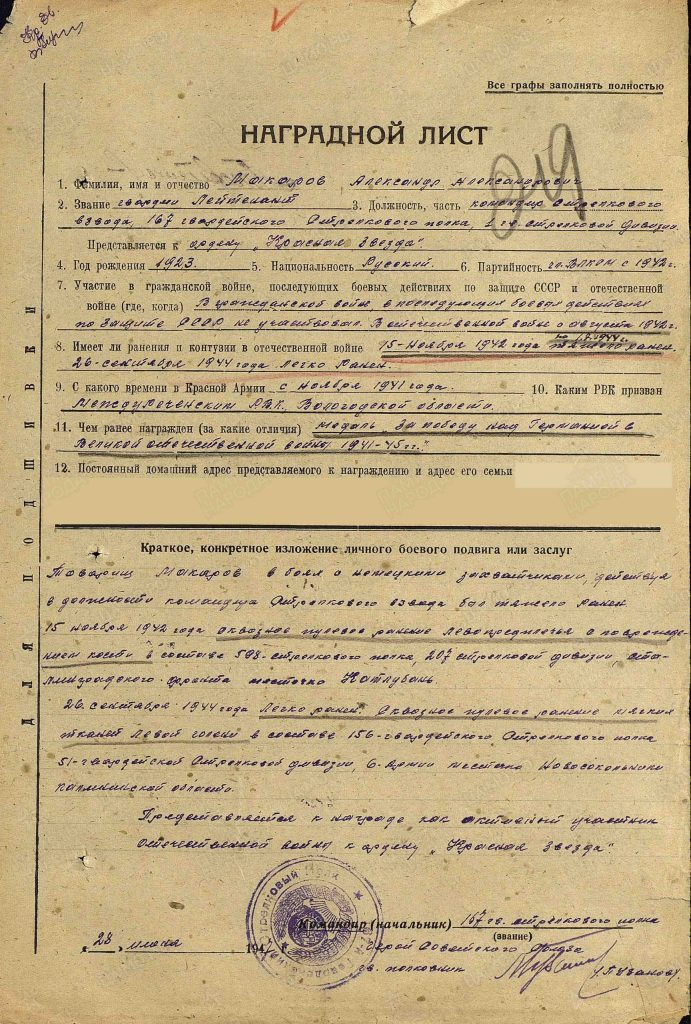 Кр. Зв.
Все графы заполнять полностью
НАГРАДНОЙ ЛИСТ
919
1. Фамилия, имя и отчество Макаров Александр Александрович
2. Звание гвардии Лейтенант 3. Должность, часть командир стрелкового
взвода, 167 гвардейского стрелкового полка, 1 гв. стрелковой дивизии
Представляется к ордену „Красная Звезда"
4. Год рождения 1923. 5. Национальность Русский 6. Партийность чл. ВЛКСМ с 1942 г.
7. Участие в гражданской войне, последующих боевых действиях по защите СССР и отечественной
войне (где, когда) В гражданской войне, в последующих боевых действиях
по защите СССР не участвовал. В отечественной войне с августа 1942 г.
8. Имеет ли ранения и контузии в отечественной войне 15-ноября 1942 года тяжело ранен.
26-сентября 1944 года легко ранен.
9. С какого времени в Красной Армии с ноября 1941 года. 10. Каким РВК призван
Междуреченским РВК. Вологодской области.
11. Чем ранее награжден (за какие отличия) медаль „За победу над Германией в
Великой отечественной войне 1941-45 гг."
12. Постоянный домашний адрес представляемого к награждению и адрес его семьи
ДЛЯ ПОДШИВКИ
Краткое, конкретное изложение личного боевого подвига или заслуг
Товарищ Макаров в боях с немецкими захватчиками, действуя
в должности командира стрелкового взвода был тяжело ранен
15 ноября 1942 года сквозное пулевое ранение левого предплечья с поврежде-
нием кости в составе 598-стрелкового полка, 207 стрелковой дивизии, ста-
линградского фронта местечко Катлубань.
26 сентября 1944 года легко ранен. Сквозное пулевое ранение мягких
тканей левой голени в составе 156-гвардейского стрелкового полка
51-гвардейской стрелковой дивизии, 6-армии местечка Новосокольники
калининской области.
Представляется к награде как активный участник
отечественной войны к ордену „Красная звезда".
Командир (начальник) 167 гв. стрелкового полка
(звание)
„28" июня 194 г. Герой Советского Союза
гв. полковник